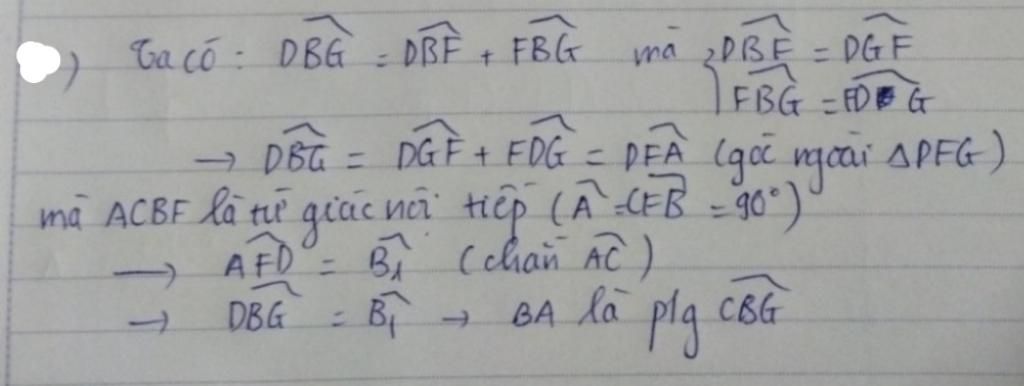 ) Ta có : DBG = DBF + FBG mà { DBF = DGF
FBG = FDG
→ DBG = DGF + FDG = DFA (góc ngoài ΔDFG)
mà ACBF là tứ giác nội tiếp (A = CFB = 90°)
→ AFD = B₁ (chắn AC)
→ DBG = B₁ → BA là p/g CBG